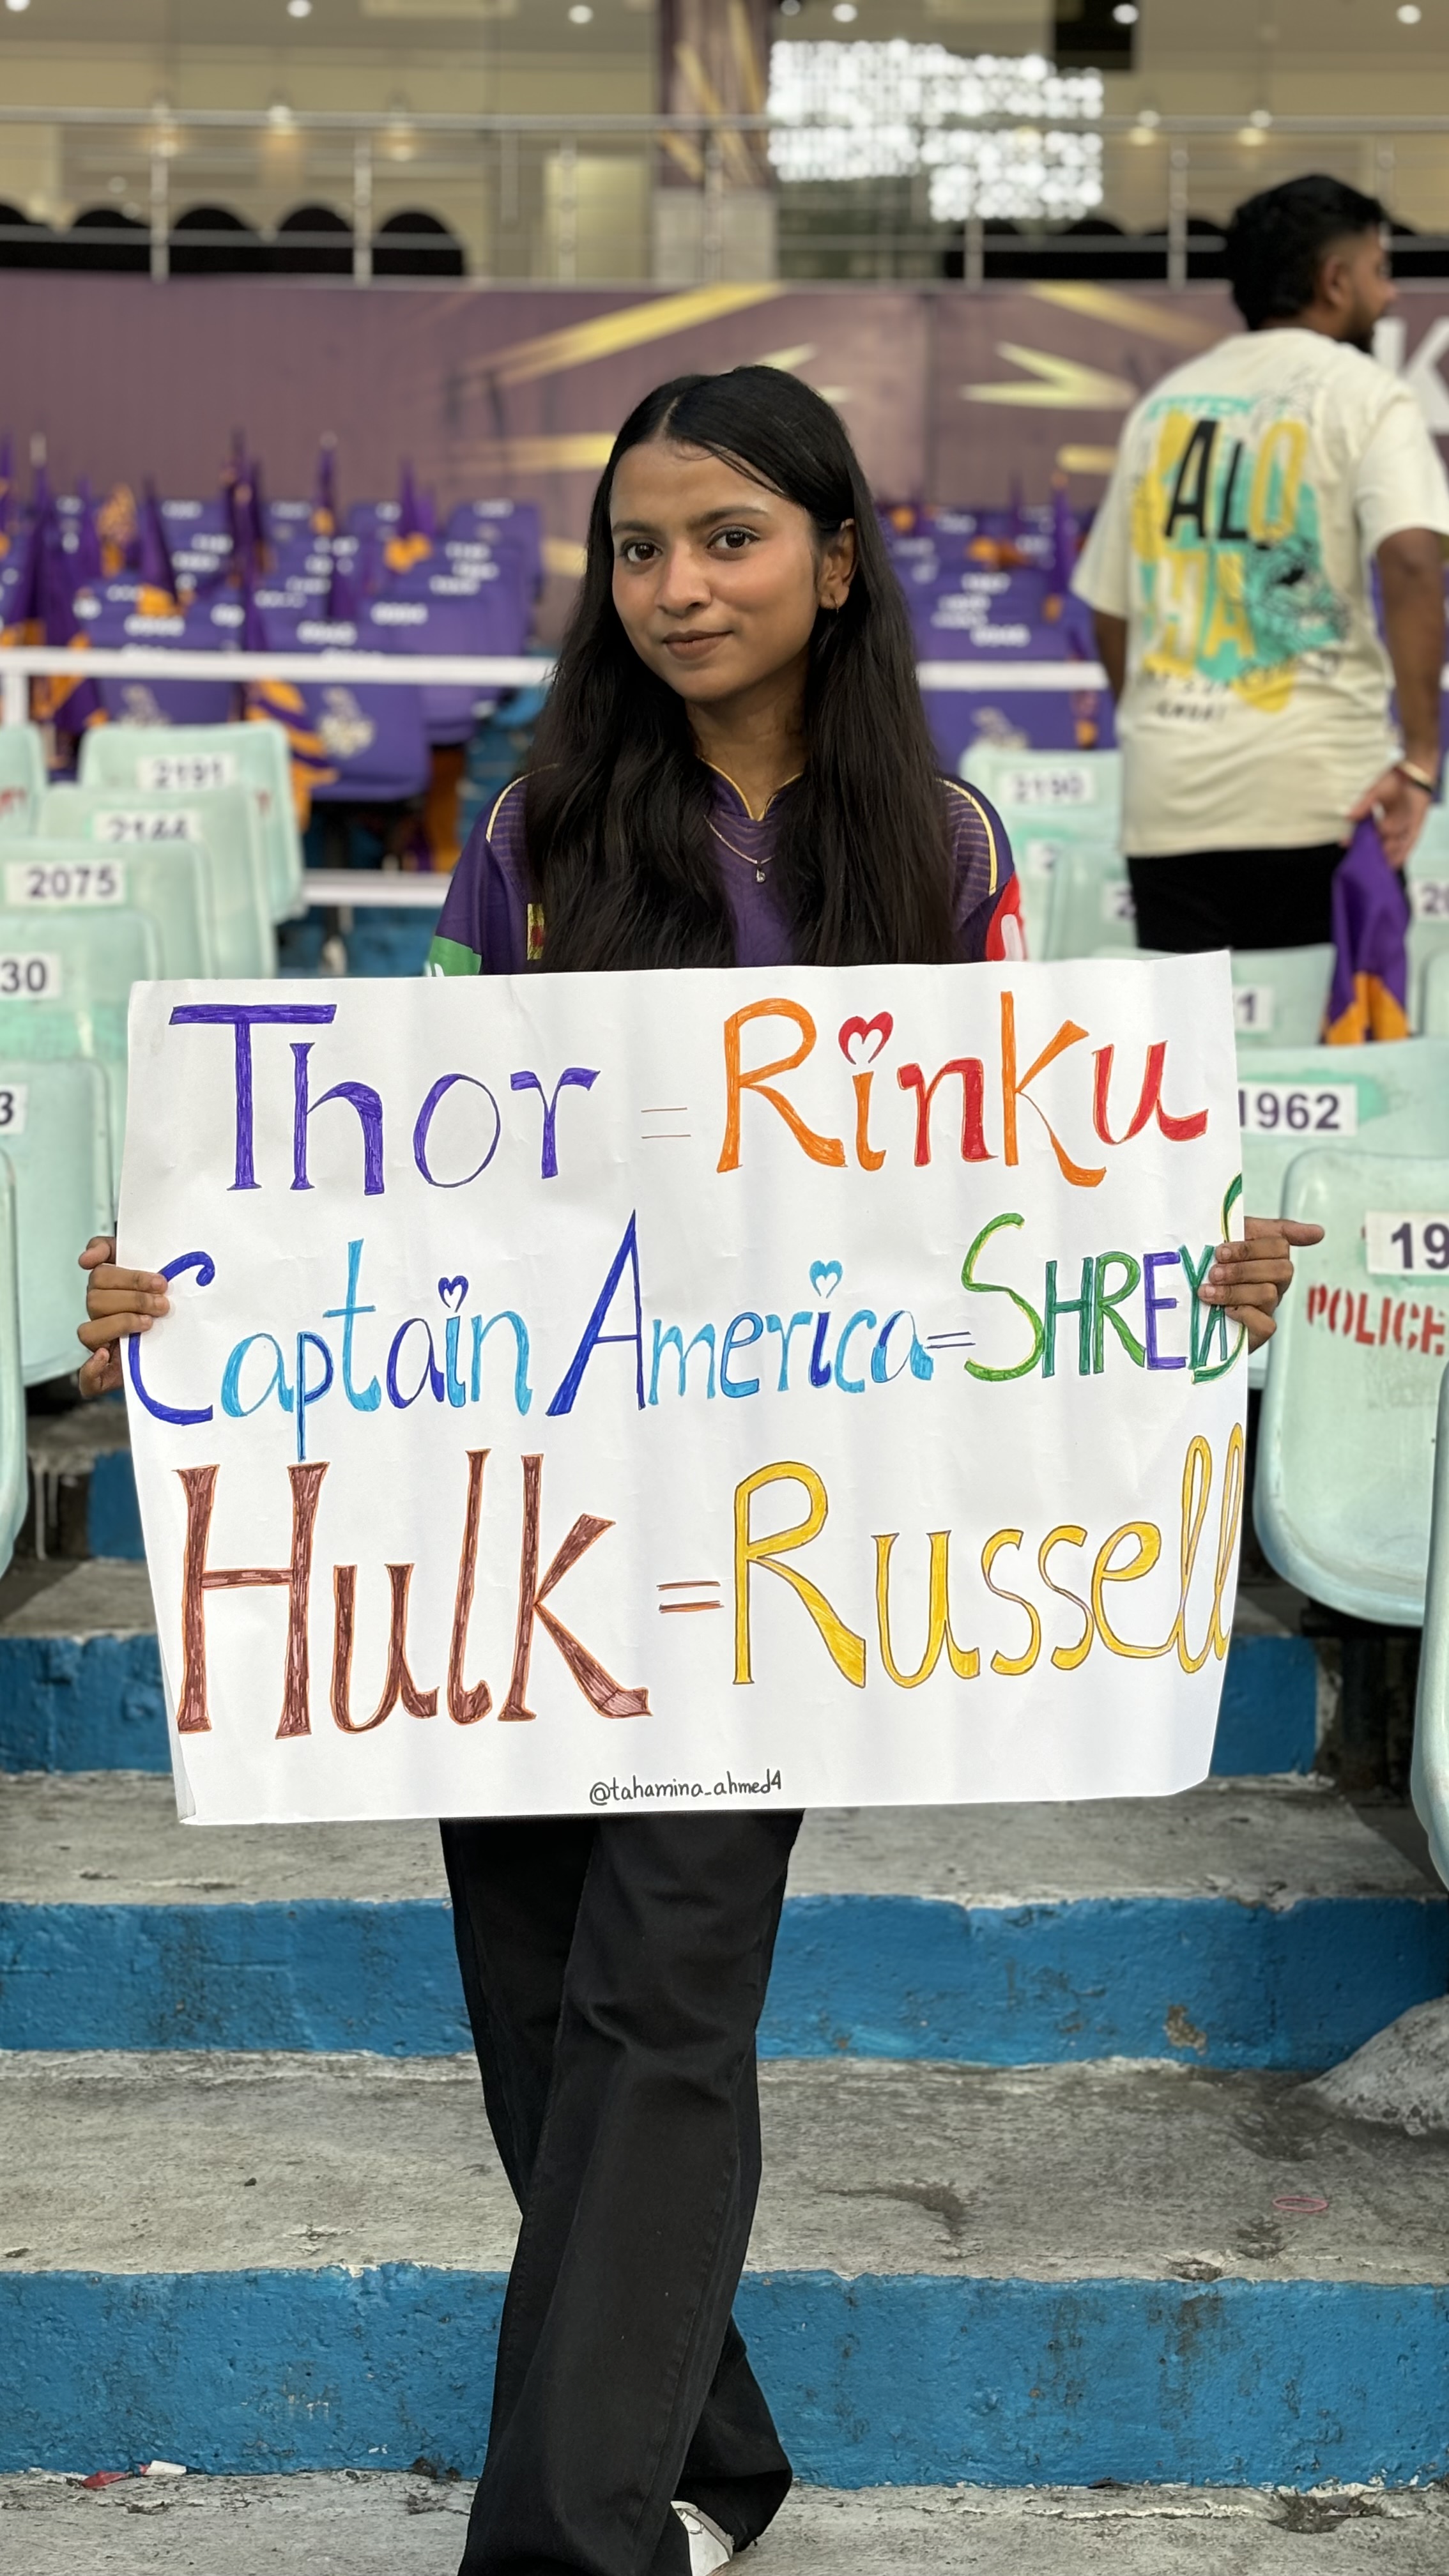 ALO
2191
2144
2190
2075
30
1
3
1962
19
POLICE
Thor = Rinku
Captain America = SHREYAS
Hulk = Russell
@tahamina_ahmed4